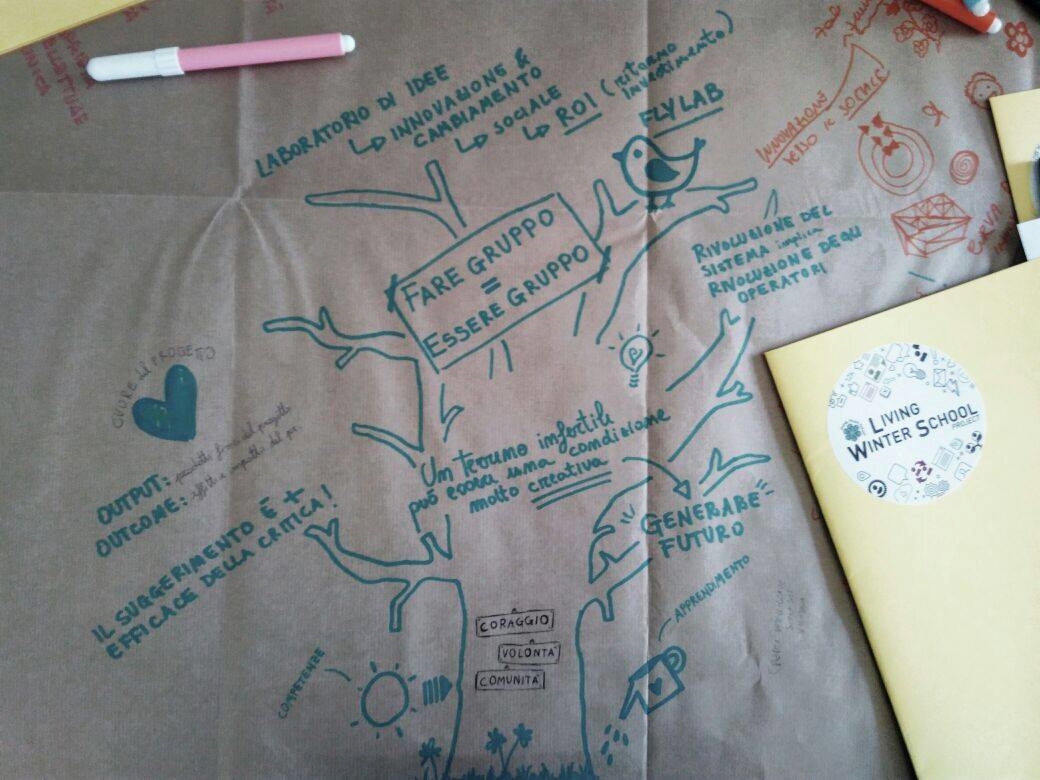 LABORATORIO DI IDEE
INNOVAZIONE &
CAMBIAMENTO
SOCIALE
ROI (RITORNO
INVESTIMENTO)
FLYLAB
INNOVAZIONI
VERSO IL SOCIALE
FARE GRUPPO
=
ESSERE GRUPPO
RIVOLUZIONE DEL
SISTEMA implica
RIVOLUZIONE DEGLI
OPERATORI
CUORE del PROGETTO
OUTPUT: prodotti finali del progetto
OUTCOME: effetti e impatti del
IL SUGGERIMENTO È +
EFFICACE DELLA CRITICA!
Un terreno infertile
può essere una condizione
molto creativa
GENERARE
FUTURO
CORAGGIO
VOLONTÀ
COMUNITÀ
COMPETENZE
APPRENDIMENTO
LIVING
WINTER SCHOOL
PROJECT